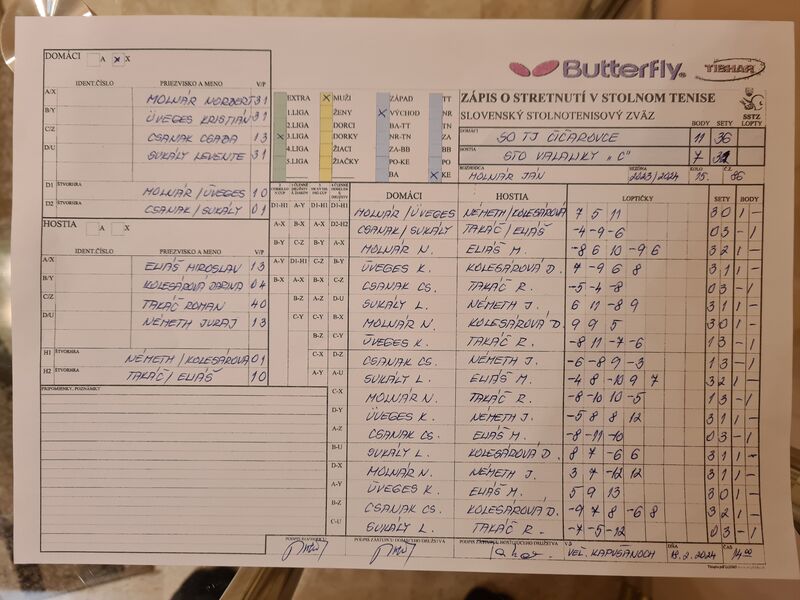 DOMÁCI A X
Butterfly
TIBHAR
IDENT.ČÍSLO PRIEZVISKO A MENO V/P
A/X MOLNÁR NORBERT 31
B/Y ÜVEGES KRISTIÁN 31
C/Z CSANAK CSABA 13
D/U SUKÁLY LEVENTE 31
D1 ŠTVORHRA MOLNÁR/ÜVEGES 10
D2 ŠTVORHRA CSANAK/SUKÁLY 01
HOSTIA A X
IDENT.ČÍSLO PRIEZVISKO A MENO V/P
A/X ELIÁŠ MIROSLAV 13
B/Y KOLESÁROVÁ DARINA 04
C/Z TAKÁČ ROMAN 40
D/U NÉMETH JURAJ 13
H1 ŠTVORHRA NÉMETH/KOLESÁROVÁ 01
H2 ŠTVORHRA TAKÁČ/ELIÁŠ 10
PRIPOMIENKY, POZNÁMKY
EXTRA X MUŽI ZÁPAD TT
1.LIGA ŽENY X VÝCHOD NR
2.LIGA DORCI BA-TT TN
X 3.LIGA DORKY NR-TN ZA
4.LIGA ŽIACI ZA-BB BB
5.LIGA ŽIAČKY PO-KE PO
BA X KE
ZÁPIS O STRETNUTÍ V STOLNOM TENISE
SLOVENSKÝ STOLNOTENISOVÝ ZVÄZ
SSTZ
BODY SETY LOPTY
DOMÁCI SO TJ ČIČAROVCE 11 36
HOSTIA STO VALALIKY "C" 7
ROZHODCA MOLNÁR JÁN SEZÓNA 2023/2024 KOLO 15. Č.S. 86
DOMÁCI HOSTIA LOPTIČKY SETY BODY
D1-H1 A-Y D1-H1 D1-H1 MOLNÁR/ÜVEGES NÉMETH/KOLESÁROVÁ 7 5 11 3 0 1 -
A-X B-X A-X D2-H2 CSANAK/SUKÁLY TAKÁČ/ELIÁŠ -4 -9 -6 0 3 - 1
B-Y C-Z B-Y A-X MOLNÁR N. ELIÁŠ M. -8 6 10 -9 6 3 2 1 -
A-Y D1-H1 C-Z B-Y ÜVEGES K. KOLESÁROVÁ D. 7 -9 6 8 3 1 1 -
B-X A-X B-X C-Z CSANAK CS. TAKÁČ R. -5 -4 -8 0 3 - 1
B-Z A-Z D-U SUKÁLY L. NÉMETH J. 6 11 -8 9 3 1 1 -
C-Y C-Y B-X MOLNÁR N. KOLESÁROVÁ D. 9 9 5 3 0 1 -
B-Z C-Y ÜVEGES K. TAKÁČ R. -8 11 -7 -6 1 3 - 1
C-X D-Z CSANAK CS. NÉMETH J. -6 -8 9 -3 1 3 - 1
A-Y A-U SUKÁLY L. ELIÁŠ M. -4 8 -10 9 7 3 2 1 -
C-X MOLNÁR N. TAKÁČ R. -8 10 -10 -5 1 3 - 1
D-Y ÜVEGES K. NÉMETH J. -5 8 8 12 3 1 1 -
A-Z CSANAK CS. ELIÁŠ M. -8 -11 -10 0 3 - 1
B-U SUKÁLY L. KOLESÁROVÁ D. 8 7 -6 6 3 1 1 -
D-X MOLNÁR N. NÉMETH J. 3 7 -12 12 3 1 1 -
A-Y ÜVEGES K. ELIÁŠ M. 5 9 13 3 0 1 -
B-Z CSANAK CS. KOLESÁROVÁ D. -9 7 8 -6 8 3 2 1 -
C-U SUKÁLY L. TAKÁČ R. -7 -5 -12 0 3 - 1
PODPIS ROZHODCU PODPIS ZÁSTUPCU DOMÁCEHO DRUŽSTVA PODPIS ZÁSTUPCU HOSŤUJÚCEHO DRUŽSTVA
V/O VEĽ. KAPUŠANOCH DŇA 18.2.2024 ČAS 14:00